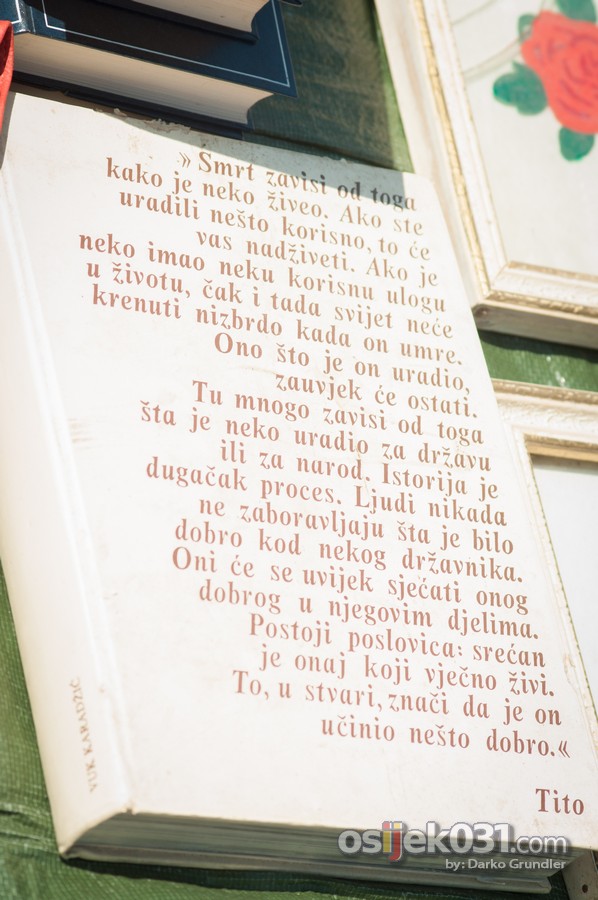 » Smrt zavisi od toga
kako je neko živeo. Ako ste
uradili nešto korisno, to će
vas nadživeti. Ako je
neko imao neku korisnu ulogu
u životu, čak i tada svijet neće
krenuti nizbrdo kada on umre.
Ono što je on uradio,
zauvjek će ostati.
Tu mnogo zavisi od toga
šta je neko uradio za državu
ili za narod. Istorija je
dugačak proces. Ljudi nikada
ne zaboravljaju šta je bilo
dobro kod nekog državnika.
Oni će se uvijek sjećati onog
dobrog u njegovim djelima.
Postoji poslovica: srećan
je onaj koji vječno živi.
To, u stvari, znači da je on
učinio nešto dobro.«
Tito
VUK KARADZIĆ
osijek031.com
by: Darko Grundler